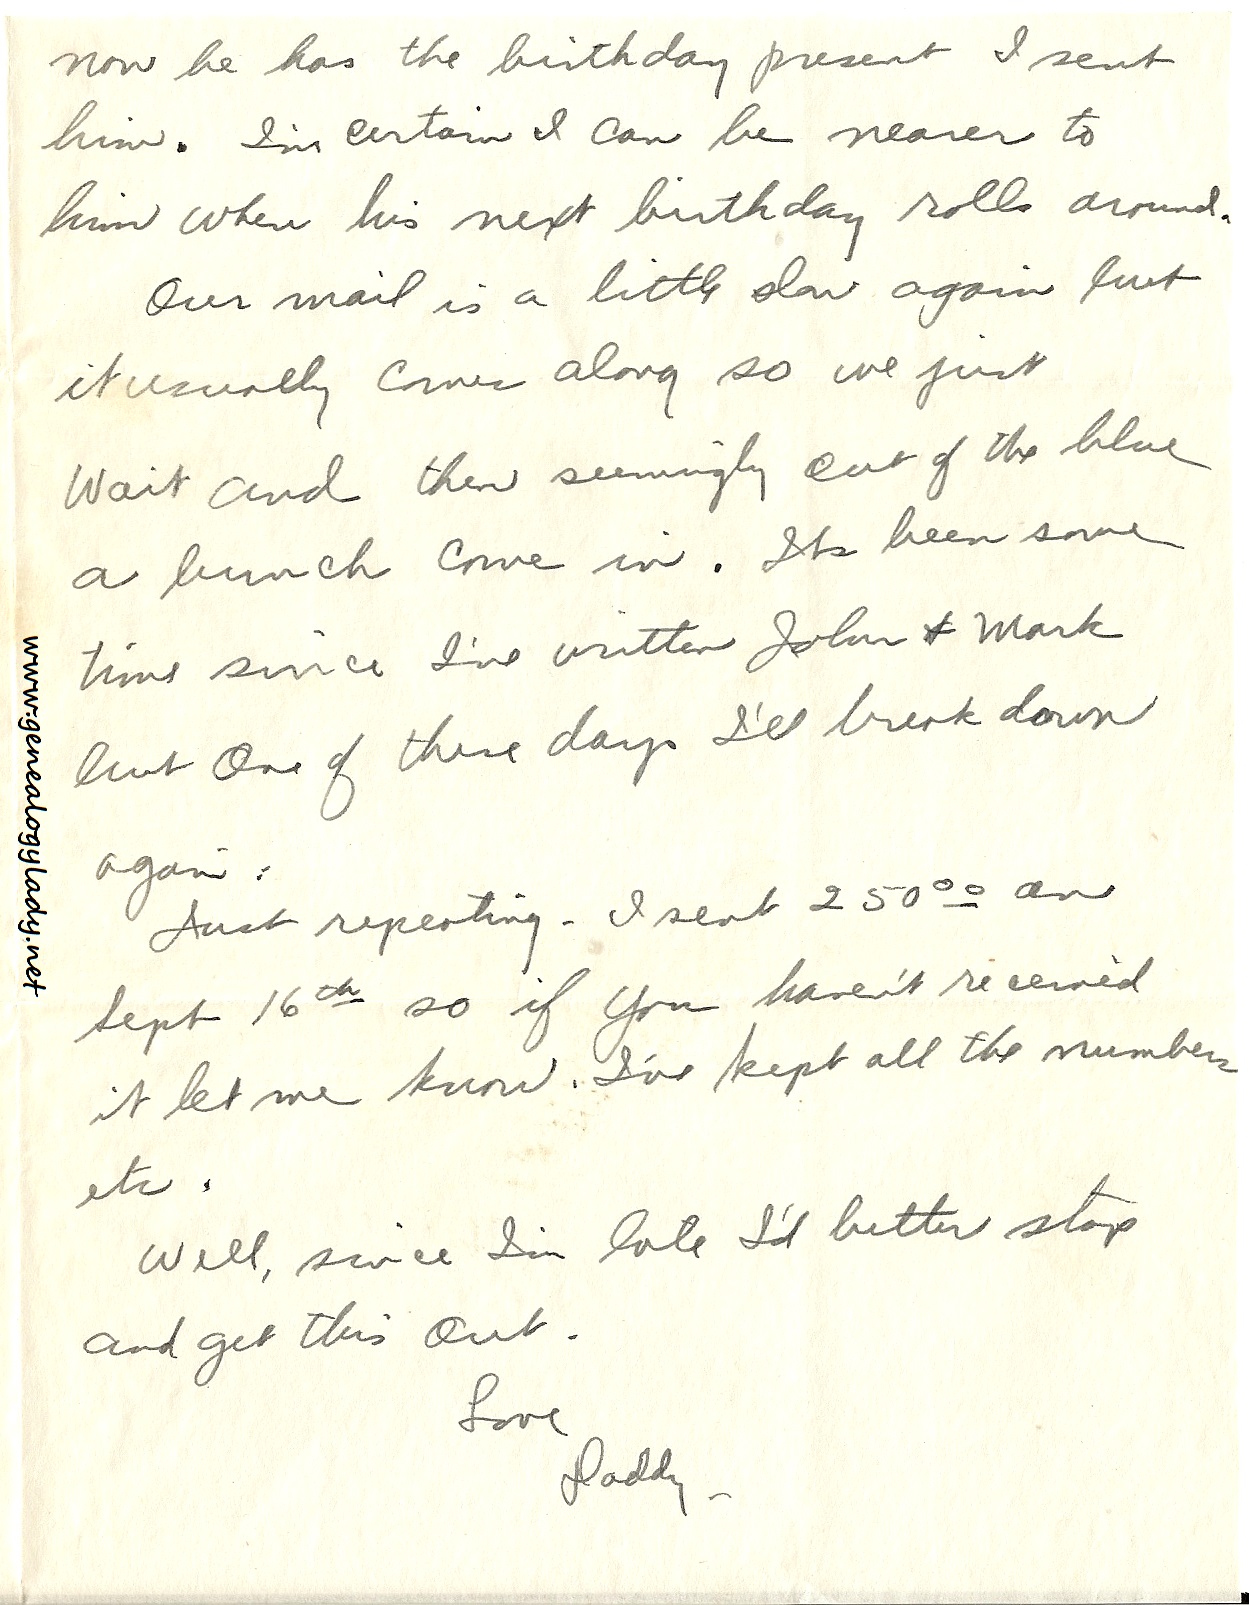 now he has the birthday present I sent
him. I'm certain I can be nearer to
him when his next birthday rolls around.
Our mail is a little slow again but
it usually comes along so we just
Wait and then seemingly out of the blue
a bunch come in. Its been some
time since I've written John & Mark
but One of these days I'll break down
again.
Just repeating - I sent 250.00 on
Sept 16th so if you haven't received
it let me know. I've kept all the numbers
etc.
Well, since I'm late I'd better stop
and get this out.
Love
Daddy -
www.genealogylady.net